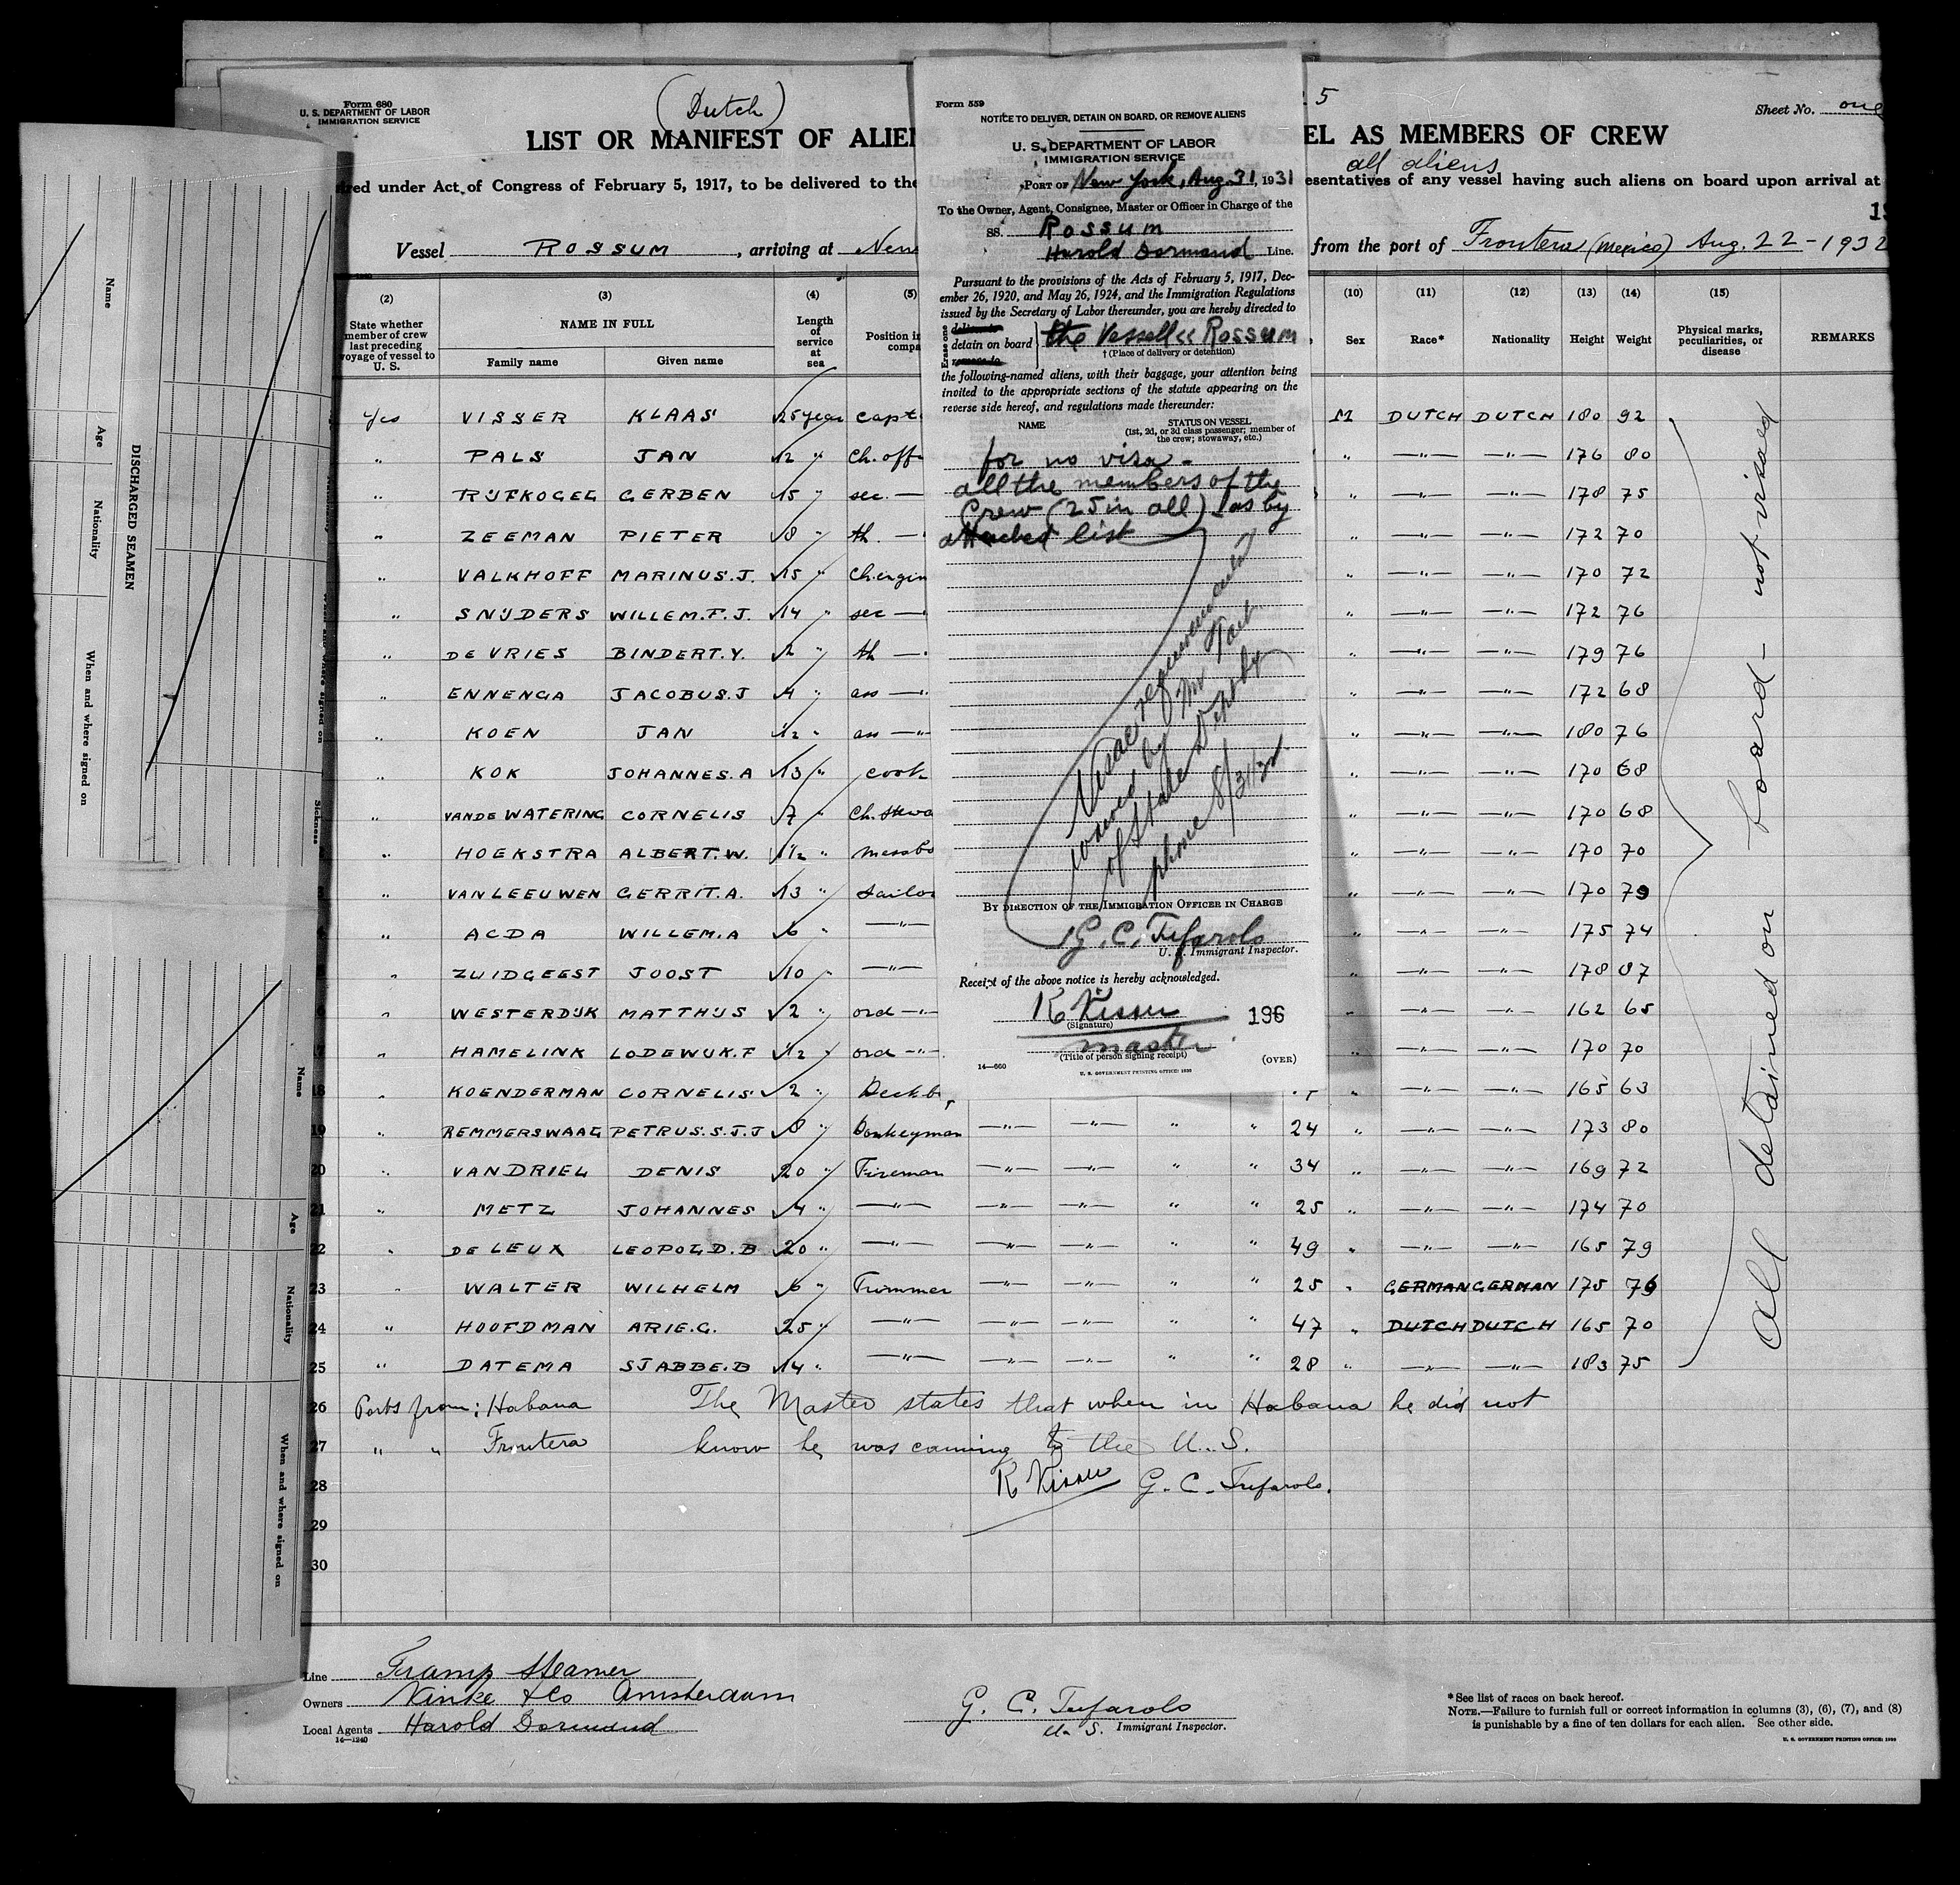 Form 680
U. S. DEPARTMENT OF LABOR
IMMIGRATION SERVICE
(Dutch)
5
Sheet No. one
LIST OR MANIFEST OF ALIEN
EL AS MEMBERS OF CREW
all aliens
red under Act of Congress of February 5, 1917, to be delivered to the
esentatives of any vessel having such aliens on board upon arrival at
19
Vessel ROSSUM, arriving at New
from the port of Frontera (Mexico) Aug. 22-1932
(2) (3) (4) (5) (10) (11) (12) (13) (14) (15)
State whether member of crew last preceding voyage of vessel to U. S.
NAME IN FULL
Family name Given name
Length of service at sea
Position in compa
Sex Race* Nationality Height Weight Physical marks, peculiarities, or disease REMARKS
yes VISSER KLAAS 25 year capt M DUTCH DUTCH 180 92
" PALS JAN 12 " Ch. off " —"— —"— 176 80
" RIJFKOGEL GERBEN 15 " sec. — " —"— —"— 178 75
" ZEEMAN PIETER 8 " th. — " —"— —"— 172 70
" VALKHOFF MARINUS.J. 15 " Ch.engin " —"— —"— 170 72
" SNIJDERS WILLEM.F.J. 14 " sec — " —"— —"— 172 76
" DE VRIES BINDERT.Y. " th — " —"— —"— 179 76
" ENNENGA JACOBUS.J 4 " ass — " —"— —"— 172 68
" KOEN JAN 1/2 " ass —"— " —"— —"— 180 76
" KOK JOHANNES.A 13 " cook " —"— —"— 170 68
" VANDE WATERING CORNELIS 7 " Ch. stewa " —"— —"— 170 68
" HOEKSTRA ALBERT.W. 1 1/2 " messbo " —"— —"— 170 70
" VAN LEEUWEN GERRIT.A. 13 " Sailor " —"— —"— 170 79
" ACDA WILLEM.A 6 " —"— " —"— —"— 175 74
" ZUIDGEEST JOOST 10 " —"— " —"— —"— 178 87
" WESTERDIJK MATTHIJS 2 " ord —"— " —"— —"— 162 65
" HAMELINK LODEWIJK.F 1/2 " ord —"— " —"— —"— 170 70
18 " KOENDERMAN CORNELIS 2 " Deckb " —"— —"— 165 63
19 " REMMERSWAAL PETRUS.S.J.J 8 " Donkeyman —"— —"— " " 24 " —"— —"— 173 80
20 " VAN DRIEL DENIS 20 " Fireman —"— —"— " " 34 " —"— —"— 169 72
21 " METZ JOHANNES 4 " —"— —"— —"— " " 25 " —"— —"— 174 70
22 " DE LEUX LEOPOLD.B 20 " —"— —"— —"— " " 49 " —"— —"— 165 79
23 " WALTER WILHELM 6 " Trimmer —"— —"— " " 25 " GERMAN GERMAN 175 76
24 " HOOFDMAN ARIE.G. 25 " —"— —"— —"— " " 47 " DUTCH DUTCH 165 70
25 " DATEMA SJABBE.B 14 " —"— —"— —"— " " 28 " —"— —"— 183 75
26 Ports from: Habana The Master states that when in Habana he did not
27 " " Frontera know he was coming to the U. S.
28 K Visser G. C. Tufarolo.
29
30
all detained on board - not visaed
Line Tramp Steamer
Owners Vinke & Co Amsterdam
Local Agents Harold Dormand
14—1240
G. C. Tufarolo
U. S. Immigrant Inspector.
* See list of races on back hereof.
NOTE.—Failure to furnish full or correct information in columns (3), (6), (7), and (8)
is punishable by a fine of ten dollars for each alien. See other side.
U. S. GOVERNMENT PRINTING OFFICE: 1930
Form 559
NOTICE TO DELIVER, DETAIN ON BOARD, OR REMOVE ALIENS
U. S. DEPARTMENT OF LABOR
IMMIGRATION SERVICE
PORT OF New York, Aug. 31, 1931
To the Owner, Agent, Consignee, Master or Officer in Charge of the
SS. Rossum
Harold Dormand Line.
Pursuant to the provisions of the Acts of February 5, 1917, Dec-
ember 26, 1920, and May 26, 1924, and the Immigration Regulations
issued by the Secretary of Labor thereunder, you are hereby directed to
Erase one
deliver to
detain on board
remove to
the Vessel SS Rossum
† (Place of delivery or detention)
the following-named aliens, with their baggage, your attention being
invited to the appropriate sections of the statute appearing on the
reverse side hereof, and regulations made thereunder:
NAME STATUS ON VESSEL
(1st, 2d, or 3d class passenger; member of
the crew; stowaway, etc.)
for no visa -
all the members of the
Crew (25 in all) as by
attached list
Visae requirements
waived by Mr
of State Dept by
phone 8/31/32
BY DIRECTION OF THE IMMIGRATION OFFICER IN CHARGE
G. C. Tufarolo
U. S. Immigrant Inspector.
Receipt of the above notice is hereby acknowledged.
K Visser
(Signature)
196
master
(Title of person signing receipt)
(OVER)
14—660
U. S. GOVERNMENT PRINTING OFFICE: 1930
DISCHARGED SEAMEN
Name
Age
Nationality
When and where signed on
Sickness
Name
Age
Nationality
When and where signed on